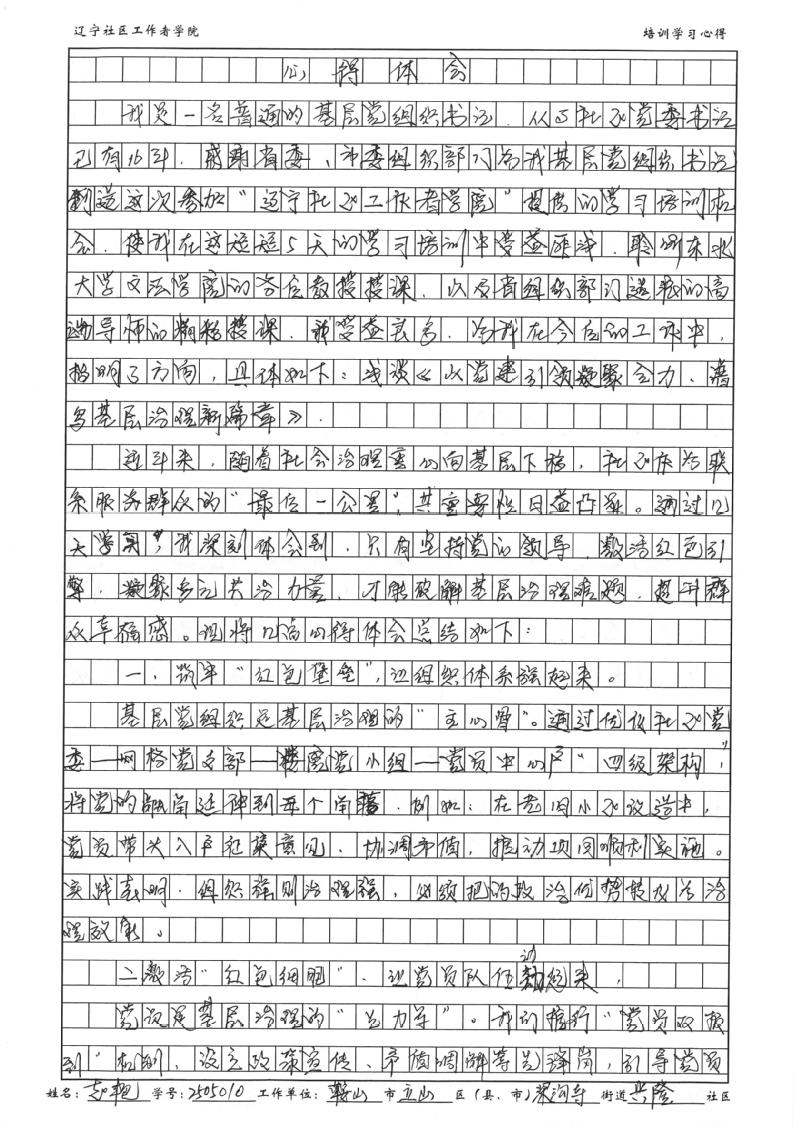 辽宁社区工作者学院 培训学习心得
心得体会
我是一名普通的基层党组织书记，从事社区党委书记
已有16年，感谢省委、市委组织部门为我基层党组织书记
创造这次参加“辽宁社区工作者学院”提供的学习培训机
会，使我在这短短5天的学习培训中受益匪浅，聆听东北
大学文法学院的各位教授授课，以及省组织部门选拔的高
导师的精彩授课，我受益良多，为我在今后的工作中，
指明了方向，具体如下：浅谈《以党建引领凝聚合力、谱
写基层治理新篇章》.
近年来，随着社会治理重心向基层下移，社区作为联
系服务群众的“最后一公里”，其重要性日益凸显。通过几
天学习，我深刻体会到，只有坚持党的领导，激活红色引
擎，凝聚多元共治力量，才能破解基层治理难题，提升群
众幸福感。现将几点心得体会总结如下：
一、筑牢“红色堡垒”，让组织体系强起来。
基层党组织是基层治理的“主心骨”。通过优化社区党
委—网格党支部—楼院党小组—党员中心户“四级架构”，
将党的触角延伸到每个角落，例如：在老旧小区改造中，
党员带头入户征集意见、协调矛盾，推动项目顺利实施。
实践表明，组织强则治理强，必须把政治优势转化为治
理效能。
二激活“红色细胞”、让党员队伍动起来，
党员是基层治理的“主力军”。我们推行“党员双报
到”机制，设立政策宣传、矛盾调解等先锋岗，引导党员
姓名： 学号：2505010 工作单位：鞍山 市 立山 区（县、市）深沟寺 街道 兴隆 社区